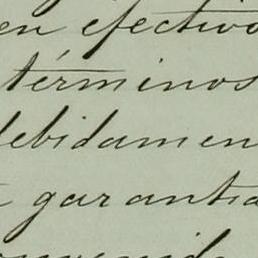 en efectivo
términos
debidamen
garantia